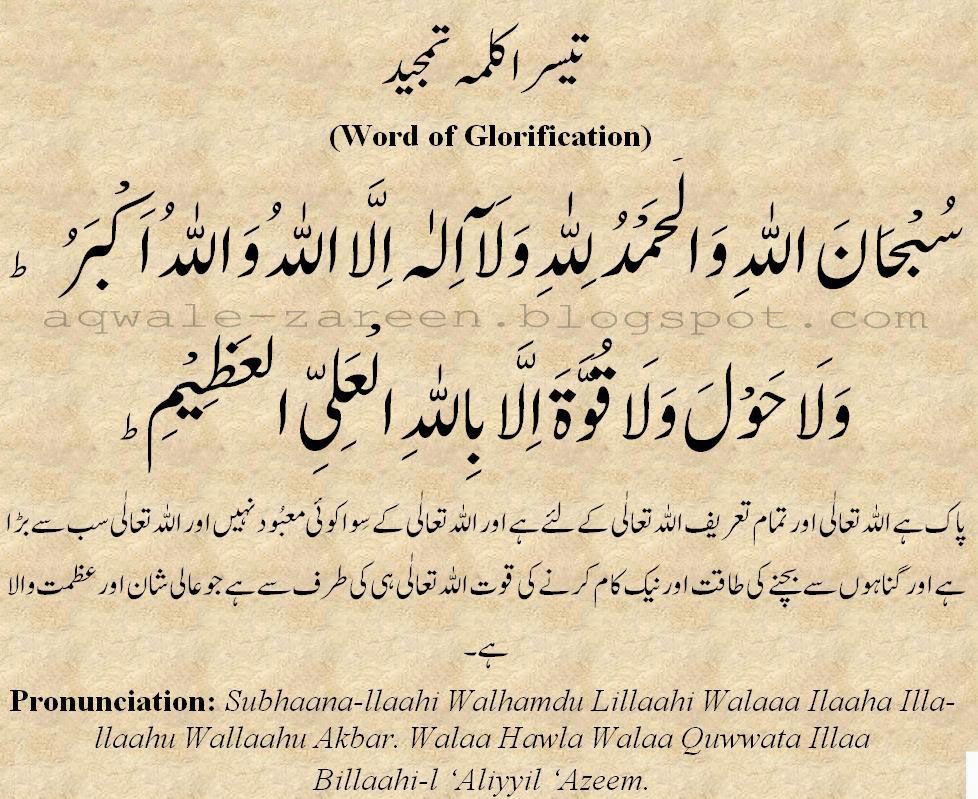 تیسرا کلمہ تمجید
(Word of Glorification)
سُبْحَانَ اللّٰهِ وَالْحَمْدُ لِلّٰهِ وَلَآ اِلٰہَ اِلَّا اللّٰهُ وَاللّٰهُ اَکْبَرُ ؕ
aqwale-zareen.blogspot.com
وَلَا حَوْلَ وَلَا قُوَّةَ اِلَّا بِاللّٰهِ الْعَلِیِّ الْعَظِیْمِ ؕ
پاک ہے اللہ تعالٰی اور تمام تعریف اللہ تعالٰی کے لئے ہے اور اللہ تعالٰی کے سِوا کوئی معبُود نہیں اور اللہ تعالٰی سب سے بڑا
ہے اور گناہوں سے بچنے کی طاقت اور نیک کام کرنے کی قوت اللہ تعالٰی ہی کی طرف سے ہے جو عالی شان اور عظمت والا
ہے۔
Pronunciation: Subhaana-llaahi Walhamdu Lillaahi Walaaa Ilaaha Illa-
llaahu Wallaahu Akbar. Walaa Hawla Walaa Quwwata Illaa
Billaahi-l ‘Aliyyil ‘Azeem.